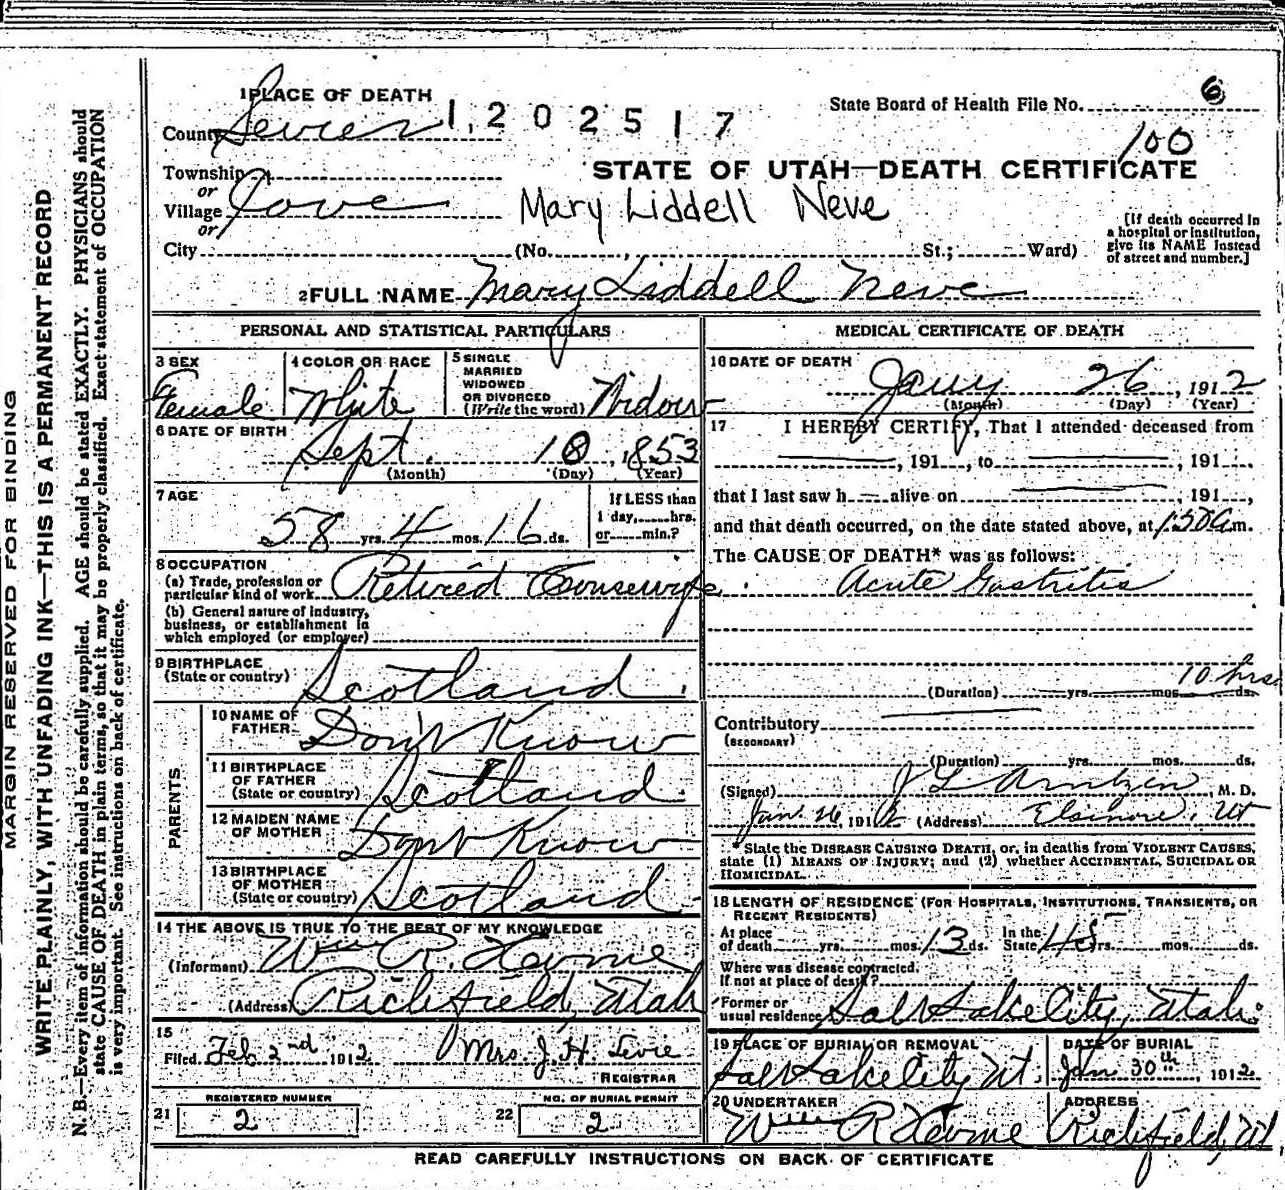 1 PLACE OF DEATH
State Board of Health File No. 6
County Sevier 1,202517
100
Township
or
STATE OF UTAH—DEATH CERTIFICATE
Village Jove
Mary Liddell Neve
or
City (No. , St.; Ward)
[If death occurred in
a hospital or institution,
give its NAME instead
of street and number.]
2 FULL NAME Mary Liddell Neve
PERSONAL AND STATISTICAL PARTICULARS
3 SEX
Female
4 COLOR OR RACE
White
5 SINGLE
MARRIED
WIDOWED
OR DIVORCED
(Write the word) Widow
6 DATE OF BIRTH
Sept. 18, 1853
(Month) (Day) (Year)
7 AGE
58 yrs. 4 mos. 16 ds.
If LESS than
1 day, hrs.
or min.?
8 OCCUPATION
(a) Trade, profession or
particular kind of work Retired Housewife
(b) General nature of industry,
business, or establishment in
which employed (or employer)
9 BIRTHPLACE
(State or country) Scotland
PARENTS
10 NAME OF
FATHER Don't Know
11 BIRTHPLACE
OF FATHER
(State or country) Scotland
12 MAIDEN NAME
OF MOTHER Don't Know
13 BIRTHPLACE
OF MOTHER
(State or country) Scotland
14 THE ABOVE IS TRUE TO THE BEST OF MY KNOWLEDGE
(Informant) Wm R.
(Address) Richfield, Utah
15
Filed Feb 2nd 1912 Mrs. J. H. Levie
REGISTRAR
REGISTERED NUMBER
21 2
NO. OF BURIAL PERMIT
22 2
MEDICAL CERTIFICATE OF DEATH
16 DATE OF DEATH
Jany 26, 1912
(Month) (Day) (Year)
17 I HEREBY CERTIFY, That I attended deceased from
, 191 , to , 191 ,
that I last saw h alive on , 191 ,
and that death occurred, on the date stated above, at 1:50 a m.
The CAUSE OF DEATH* was as follows:
Acute Gastritis
10 hrs
(Duration) yrs. mos. ds.
Contributory
(SECONDARY)
(Duration) yrs. mos. ds.
(Signed) J L Arntzen, M. D.
Jan. 26, 1912 (Address) Elsinore, Ut
*State the DISEASE CAUSING DEATH, or, in deaths from VIOLENT CAUSES,
state (1) MEANS OF INJURY; and (2) whether ACCIDENTAL, SUICIDAL OR
HOMICIDAL.
18 LENGTH OF RESIDENCE (FOR HOSPITALS, INSTITUTIONS, TRANSIENTS, OR
RECENT RESIDENTS)
At place
of death yrs. mos. 13 ds. In the
State 45 yrs. mos. ds.
Where was disease contracted,
If not at place of death?
Former or
usual residence Salt Lake City, Utah.
19 PLACE OF BURIAL OR REMOVAL
Salt Lake City Ut.
DATE OF BURIAL
Jan 30th, 1912
20 UNDERTAKER
Wm R
ADDRESS
Richfield, Ut
READ CAREFULLY INSTRUCTIONS ON BACK OF CERTIFICATE
MARGIN RESERVED FOR BINDING
WRITE PLAINLY, WITH UNFADING INK—THIS IS A PERMANENT RECORD
N. B.—Every item of information should be carefully supplied. AGE should be stated EXACTLY. PHYSICIANS should
state CAUSE OF DEATH in plain terms, so that it may be properly classified. Exact statement of OCCUPATION
is very important. See instructions on back of certificate.